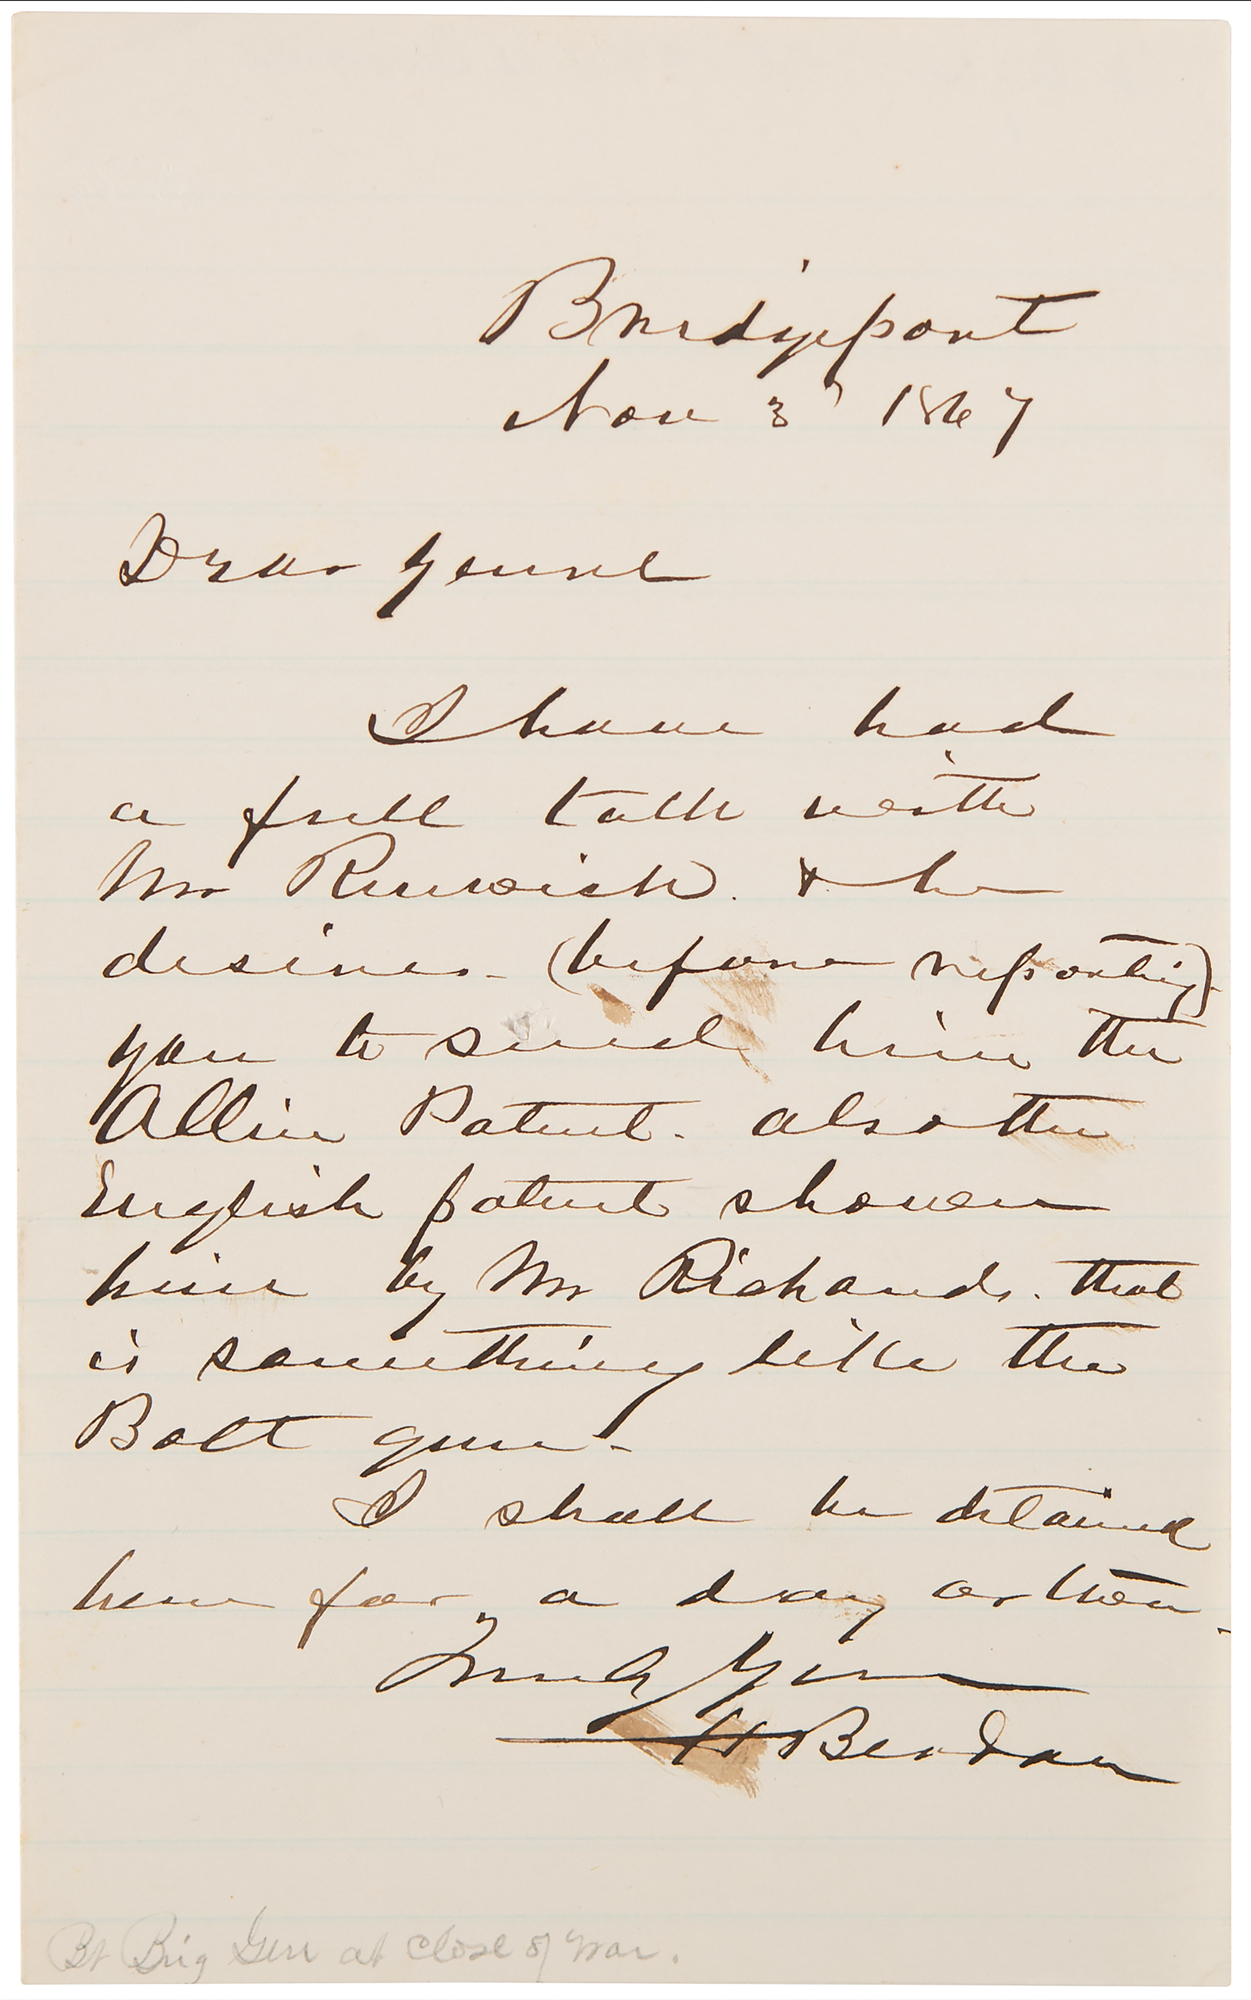 Bridgeport
Nov 3d 1867
Dear Genrel
I have had
a full talk with
Mr Renwick. & he
desires - (before reporting)
you to send him the
Allin Patent. also the
English patent shown
him by Mr Richards. that
is something like the
Bolt gun -
I shall be detained
here for a day or two -
Truly Yours
H Berdan
Bt Brig Gen at close of war.